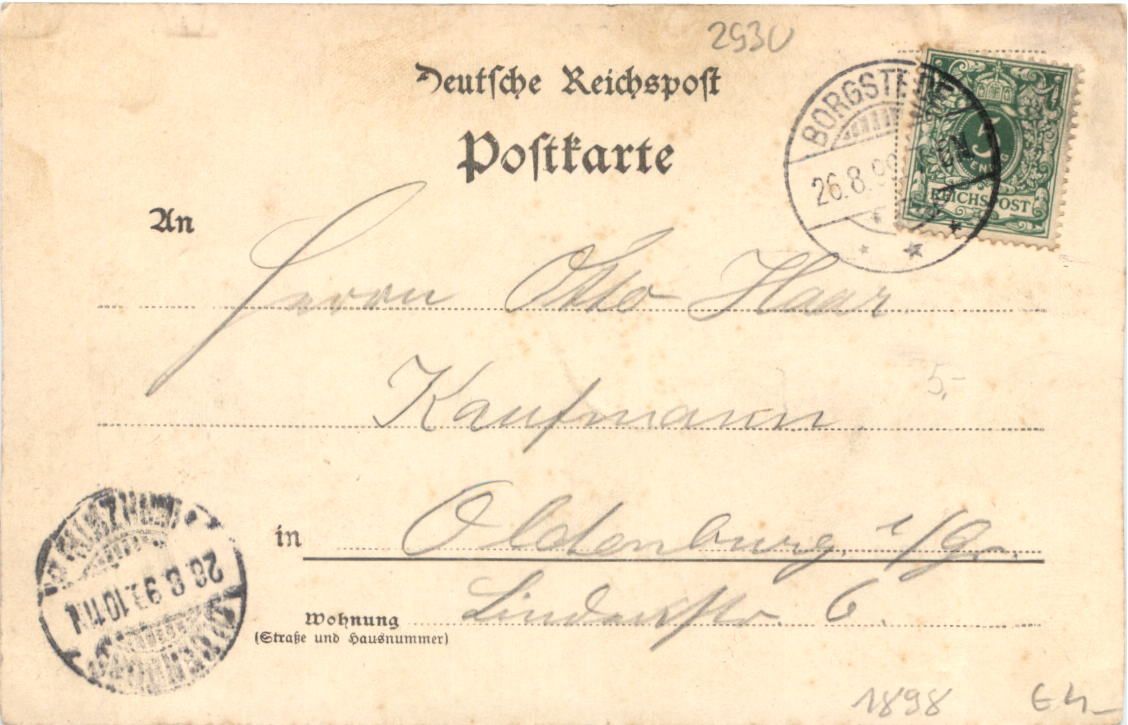 2930
Deutsche Reichspost
Postkarte
BORGSTEDE
26.8.98
5
REICHSPOST
An
Herrn Otto Haar
Kaufmann
5,-
in Oldenburg i/Gr.
Lindenstr. 6.
Wohnung
(Straße und Hausnummer)
OLDENBURG
26.8.9 10-11N
1898